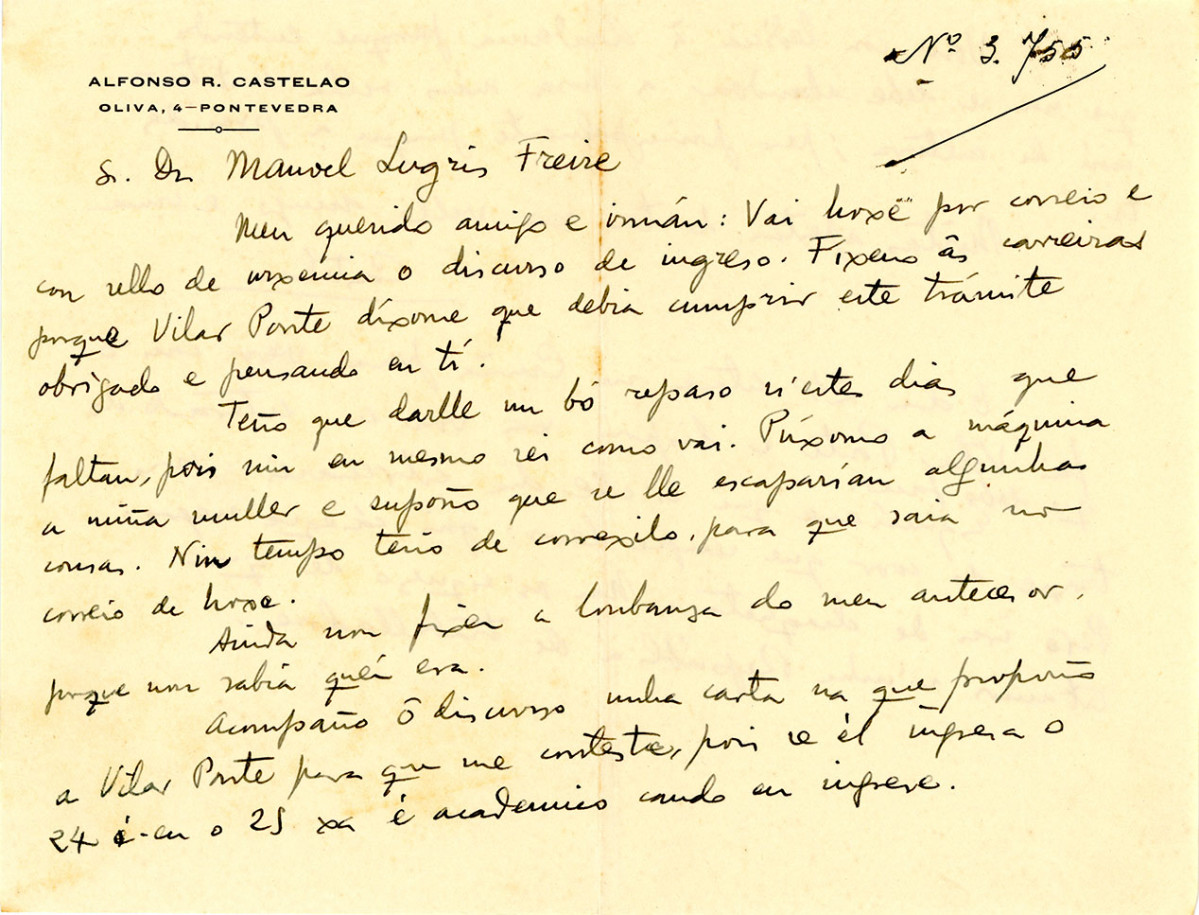 Nº 3.755
ALFONSO R. CASTELAO
OLIVA, 4—PONTEVEDRA
Sr. Dn Manoel Lugris Freire
Meu querido amigo e irmán: Vai hoxe por correio e
con sello de urxencia o discurso de ingreso. Fixeno ás carreiras
porque Vilar Ponte díxome que debia cumprir este trámite
obrigado e pensando en tí.
Teño que darlle un bó repaso n'istes dias que
faltan, pois nin eu mesmo sei como vai. Púxomo a máquina
a miña muller e supoño que se lle escaparían algunhas
cousas. Nin tempo teño de correxilo, para que saia no
correio de hoxe.
Ainda non fixen a loubanza do meu antecesor,
porque non sabia quén era.
Acompaño ô discurso unha carta na que propoño
a Vilar Ponte para que me conteste, pois se él ingresa o
24 é-eu o 25 xa é academico cando eu ingrese.